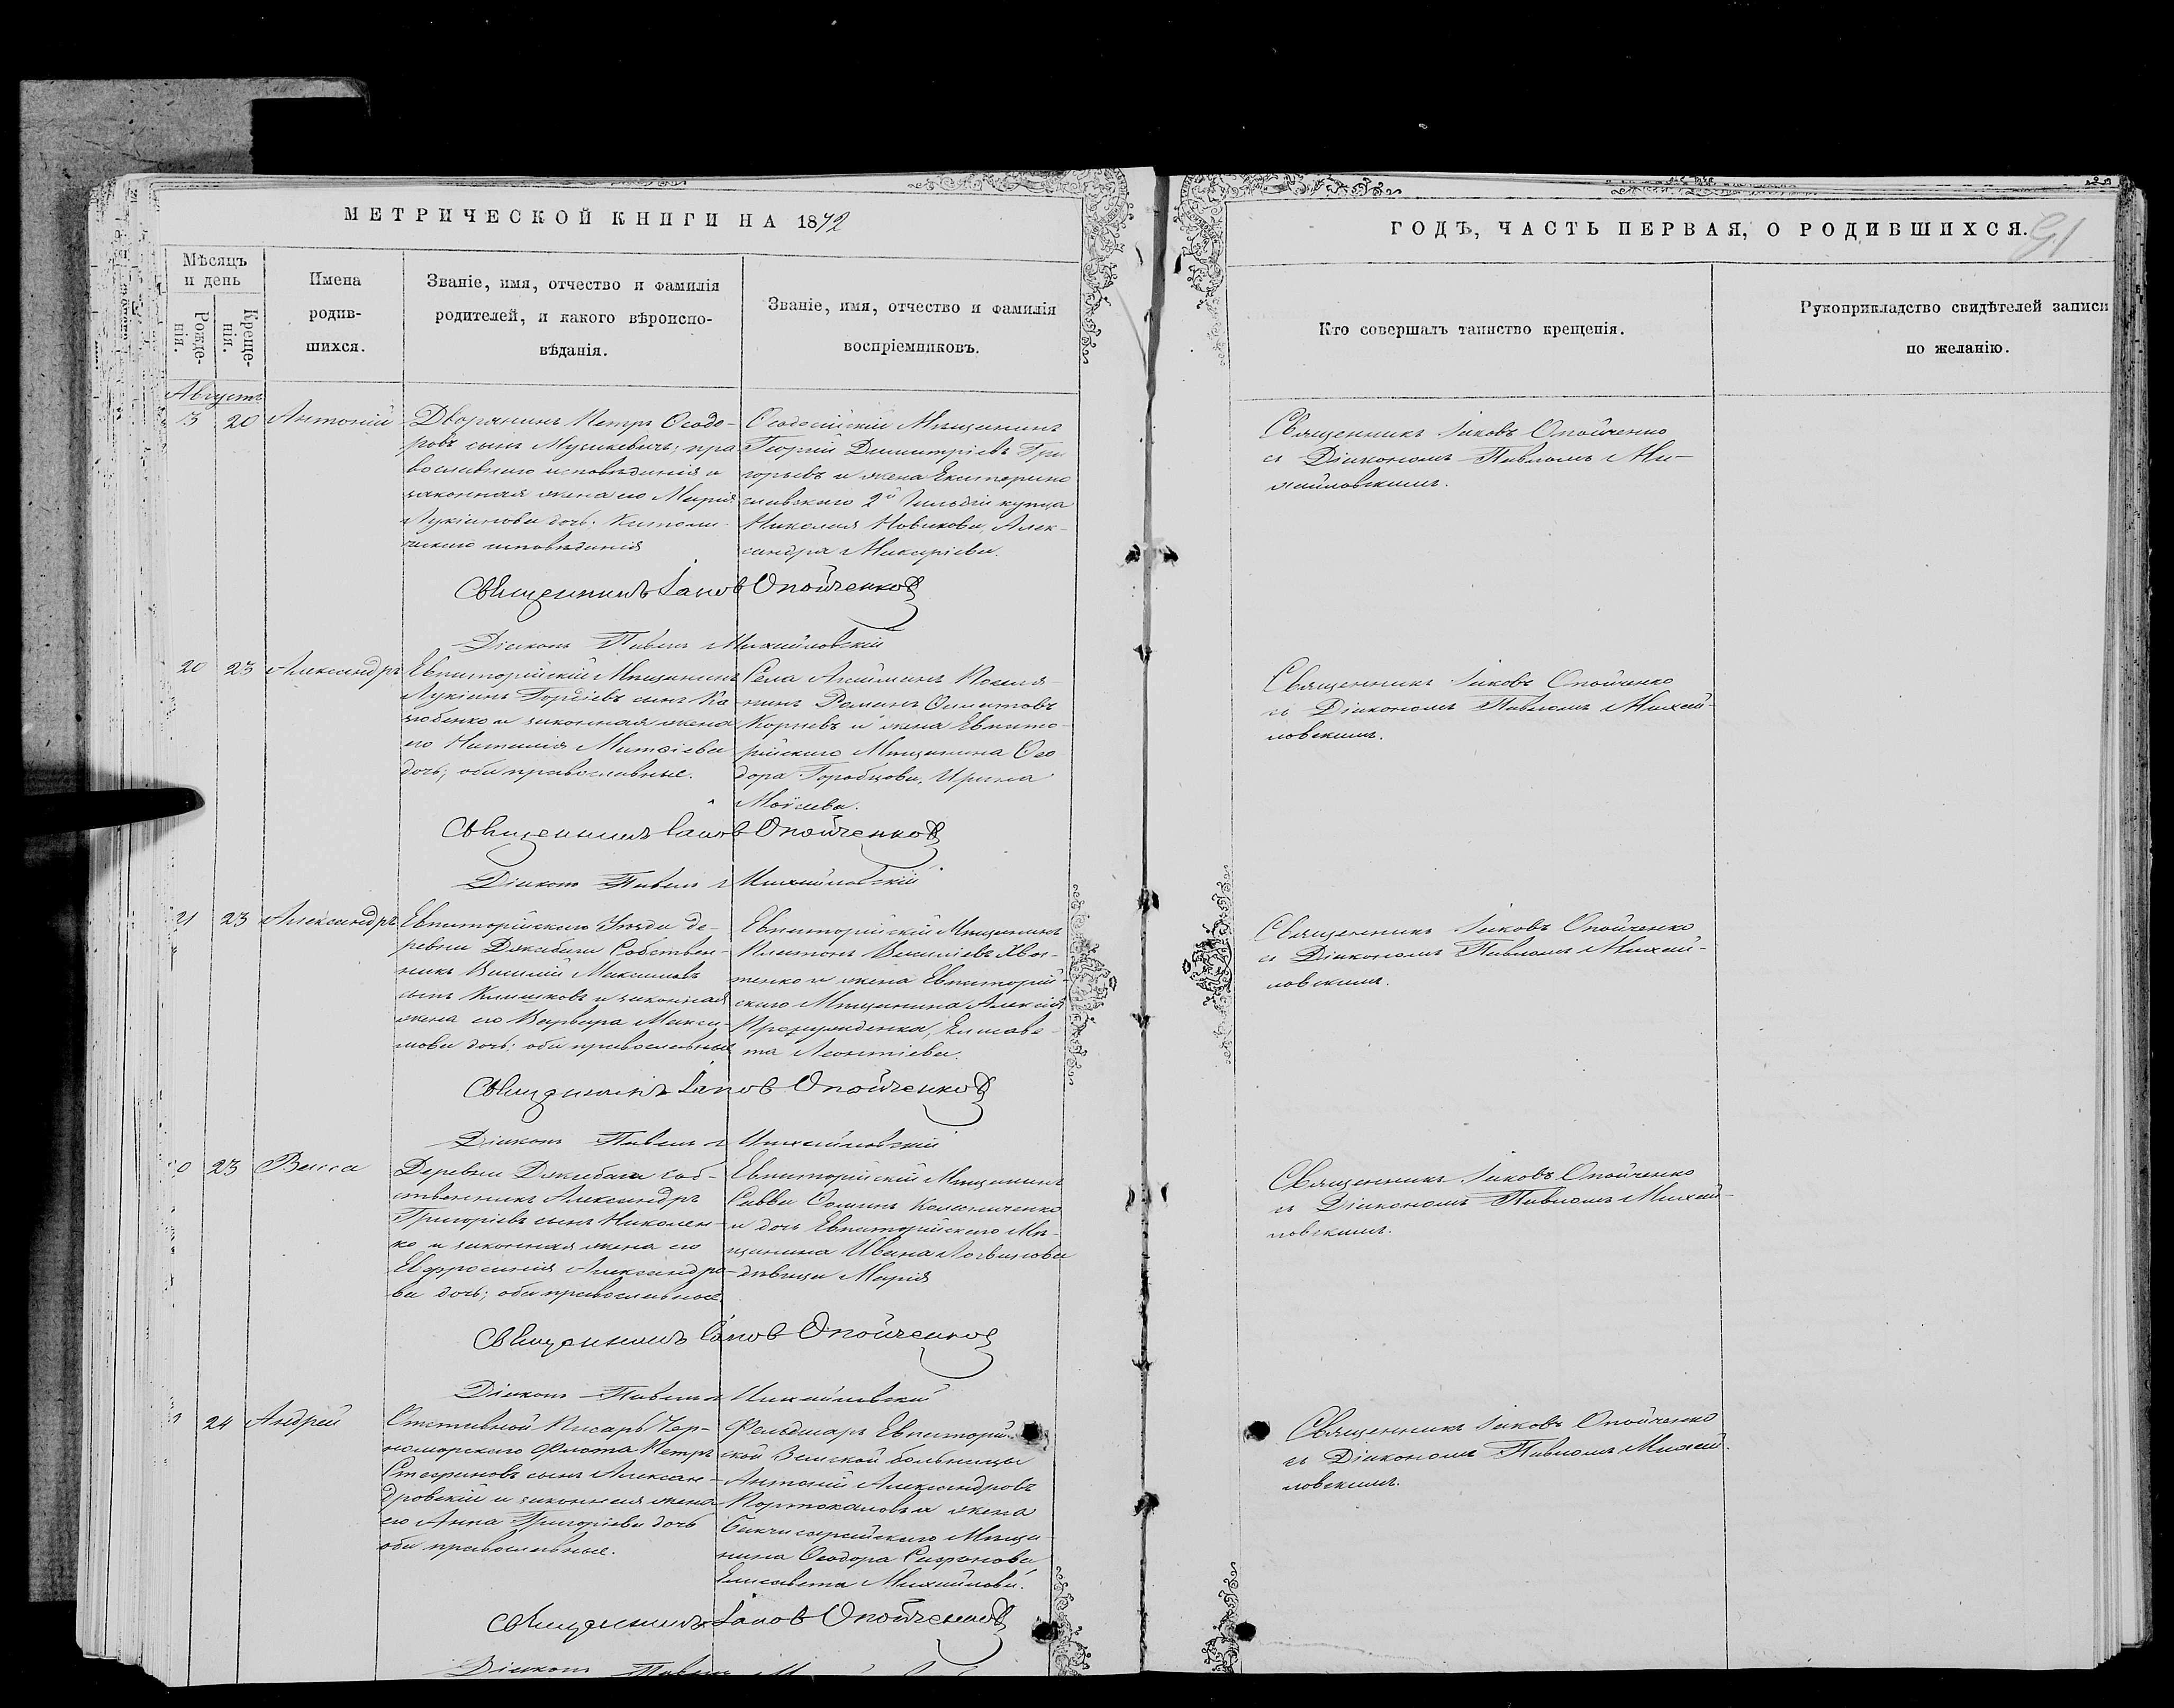 МЕТРИЧЕСКОЙ КНИГИ НА 1872
ГОДЪ, ЧАСТЬ ПЕРВАЯ, О РОДИВШИХСЯ.
91
Мѣсяцъ
и день
Рожде-
нія.
Креще-
нія.
Имена
родив-
шихся.
Званіе, имя, отчество и фамилія
родителей, и какого вѣроиспо-
вѣданія.
Званіе, имя, отчество и фамилія
воспріемниковъ.
Кто совершалъ таинство крещенія.
Рукоприкладство свидѣтелей записи
по желанію.
Августъ
13 20 Антоній
Дворянинъ Петръ Ѳеодо-
ровъ сынъ Мушкевичъ; пра
вославнаго исповѣданія и
законная жена его Марія
Лукіанова дочь; Католи-
ческаго исповѣданія
Ѳеодосійскій Мѣщанинъ
Георгій Димитріевъ Гри
горьевъ и жена Екатерино
славскаго 2й Гильдіи купца
Николая Новикова, Алек-
сандра Макаріева.
Священникъ Іаковъ Опойченко
съ Діакономъ Павломъ Ми-
хайловскимъ.
Священникъ Іаковъ Опойченковъ
Діаконъ Павелъ Михайловскій
20 23 Александръ
Евпаторійскій Мѣщанинъ
Лукіанъ Гордіевъ сынъ Ко
зюбенко и законная жена
его Наталія Матѳіева
дочь; оба православные.
Села Посел-
нинъ Романъ
Корневъ и жена Евпато-
рійскаго Мѣщанина Ѳео
дора Горобцова, Ирина
Моѵсеева.
Священникъ Іаковъ Опойченко
съ Діакономъ Павломъ Михай-
ловскимъ.
Священникъ Іаковъ Опойченковъ
Діаконъ Павелъ Михайловскій
21 23 Александръ
Евпаторійскаго Уѣзда де-
ревни Джабага Собствен-
никъ Василій Максимовъ
сынъ Климковъ и законная
жена его Варвара Макси-
мова дочь; оба православные
Евпаторійскій Мѣщанинъ
Платонъ Василіевъ Хво-
тенко и жена Евпаторій-
скаго Мѣщанина Алексія
Елисаве-
та Леонтіева.
Священникъ Іаковъ Опойченко
съ Діакономъ Павломъ Михай-
ловскимъ.
Священникъ Іаковъ Опойченковъ
Діаконъ Павелъ Михайловскій
0 23 Васса
Деревни Джабага соб-
ственникъ Александръ
Григоріевъ сынъ Николен-
ко и законная жена его
Евфросинія Александро-
ва дочь; оба православные.
Евпаторійскій Мѣщанинъ
Савва Ѳоминъ Коломиченко
и дочь Евпаторійскаго Мѣ-
щанина Ивана Логвинова
дѣвица Марія
Священникъ Іаковъ Опойченко
съ Діакономъ Павломъ Михай-
ловскимъ.
Священникъ Іаковъ Опойченко
Діаконъ Павелъ Михайловскій
24 Андрей
Отставной Писарь Чер-
номорскаго Флота Петръ
Стефановъ сынъ Алексан-
дровскій и законная жена
его Анна Григоріева дочь
оба православные.
Фельдшеръ Евпаторій-
ской Земской больницы
Антоній Александровъ
Портокаловъ и жена
Бахчисарайскаго Мѣща-
нина Ѳеодора Сафонова
Елисавета Михайлова.
Священникъ Іаковъ Опойченко
съ Діакономъ Павломъ Михай-
ловскимъ.
Священникъ Іаковъ Опойченковъ
Діаконъ Павелъ